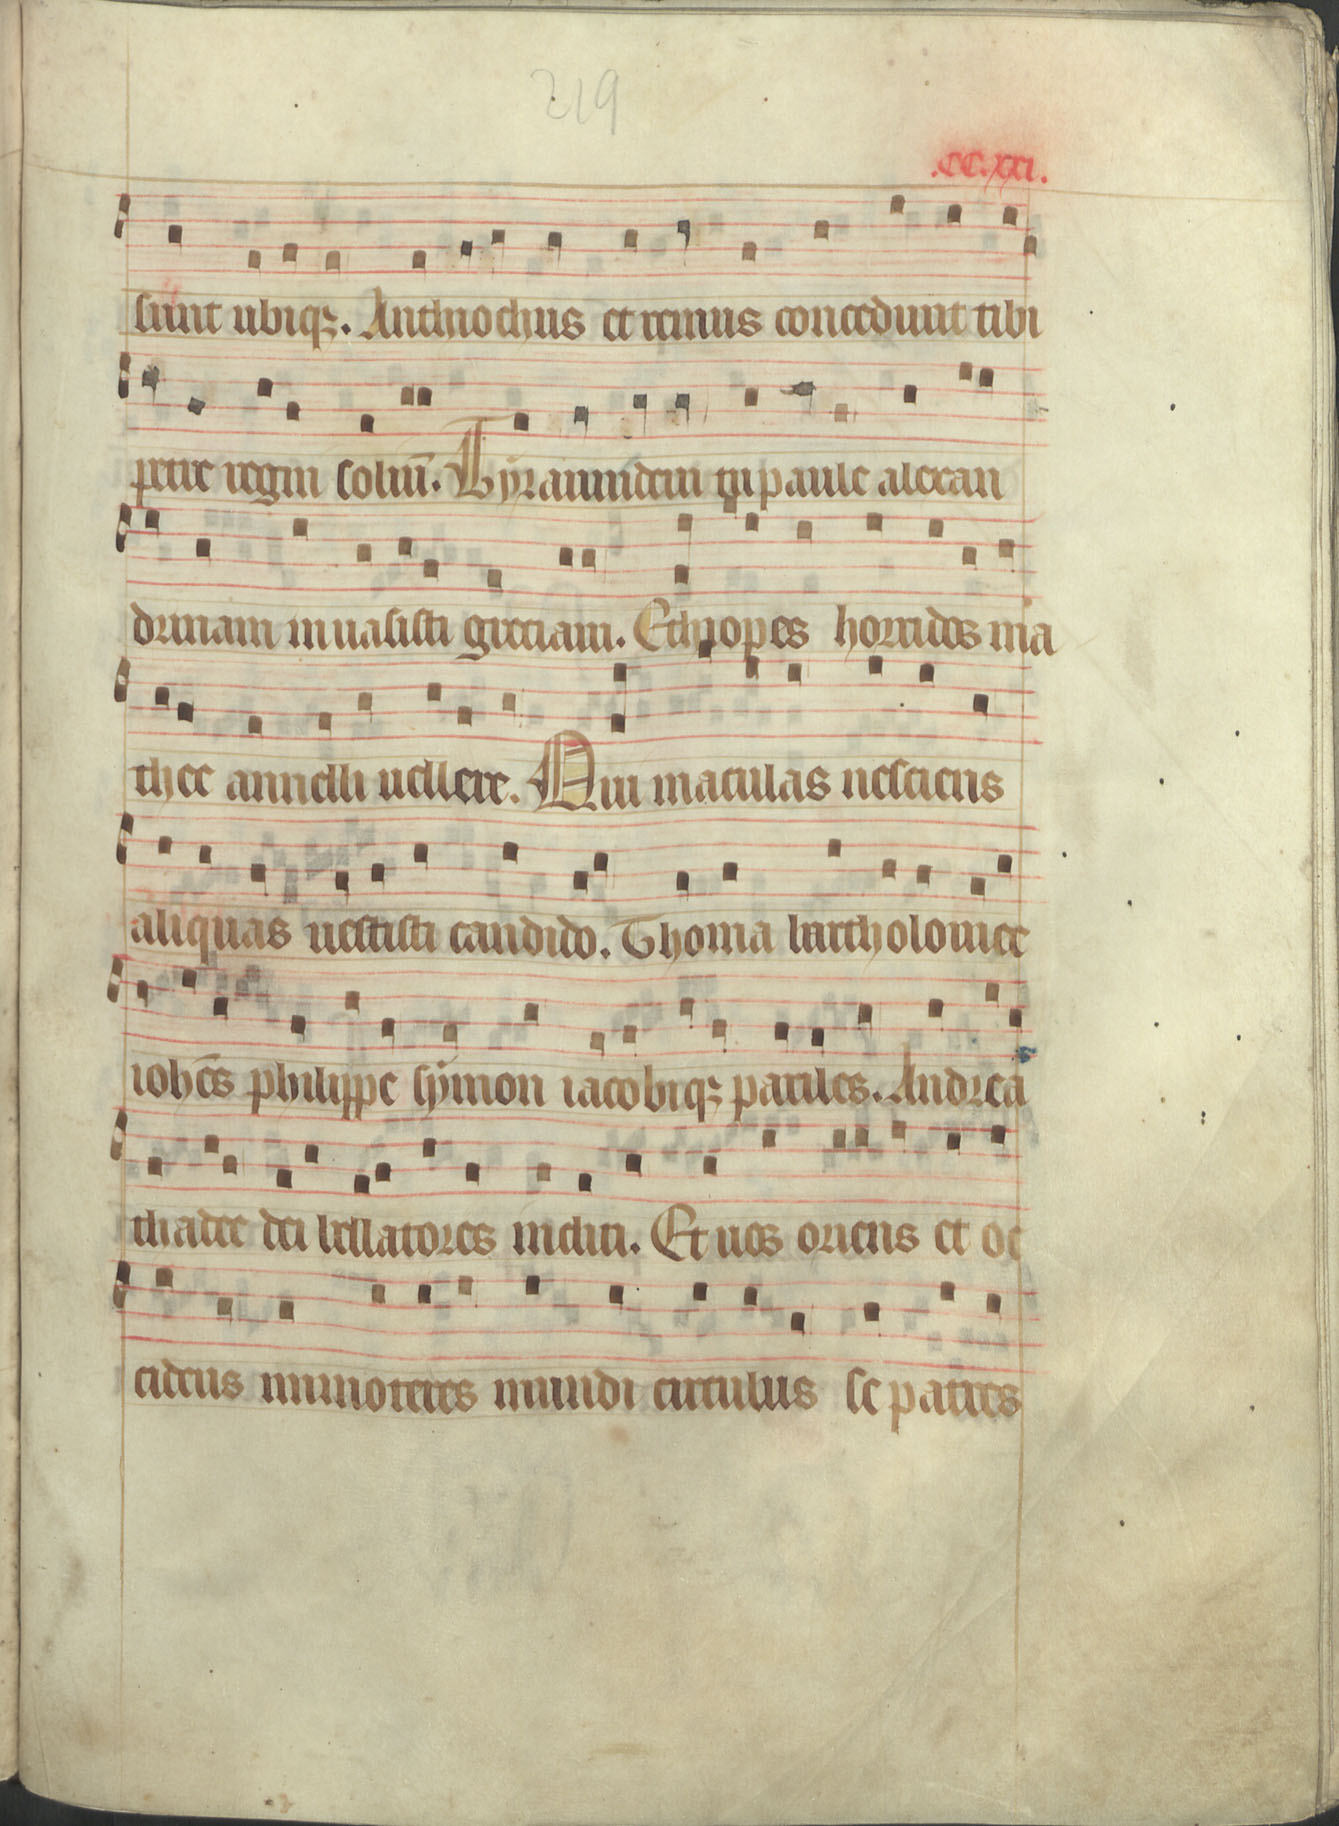 219
.CC.xxi.
sunt ubiqꝫ. Anthiochus et remus concedunt tibi
petre regni soliū. Tyrannidem tu paule alexan
drinam inuasisti greciam. Ethyopes horridos ma
thee annelli uellere. Qui maculas nesciens
aliquas uestisti candido. Thoma bartholomee
ioħēs philippe symon iacobiqꝫ pariles. Andrea
thadee dei bellatores incliti. Et uos oriens et oc
cidens immo teres mundi circulus se patres